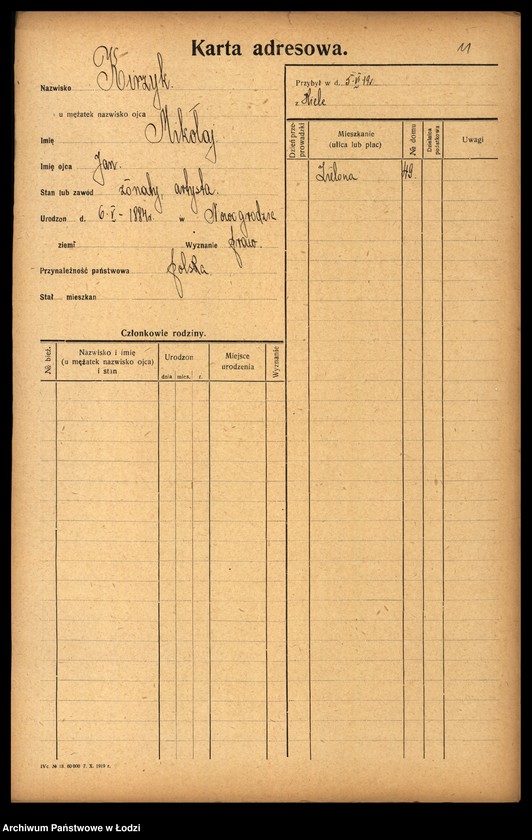 Karta adresowa.
11
Nazwisko Kirzyk.
u mężatek nazwisko ojca
Imię Mikołaj
Imię ojca Jan.
Stan lub zawód żonaty. artysta.
Urodzon d. 6-V-1884r w Nowogrodzie
ziemi Wyznanie praw.
Przynależność państwowa polska
Stał. mieszkan
Przybył w d. 5-VI-
z Kiele
Dzień przeprowadzki
Mieszkanie
(ulica lub plac)
№ domu
Dzielnica podatkowa
Uwagi
Zielona 49.
Członkowie rodziny.
№ bież.
Nazwisko i imię
(u mężatek nazwisko ojca)
i stan
Urodzon
dnia mies. r.
Miejsce
urodzenia
Wyznanie
7. X. 1919 r.
Archiwum Państwowe w Łodzi